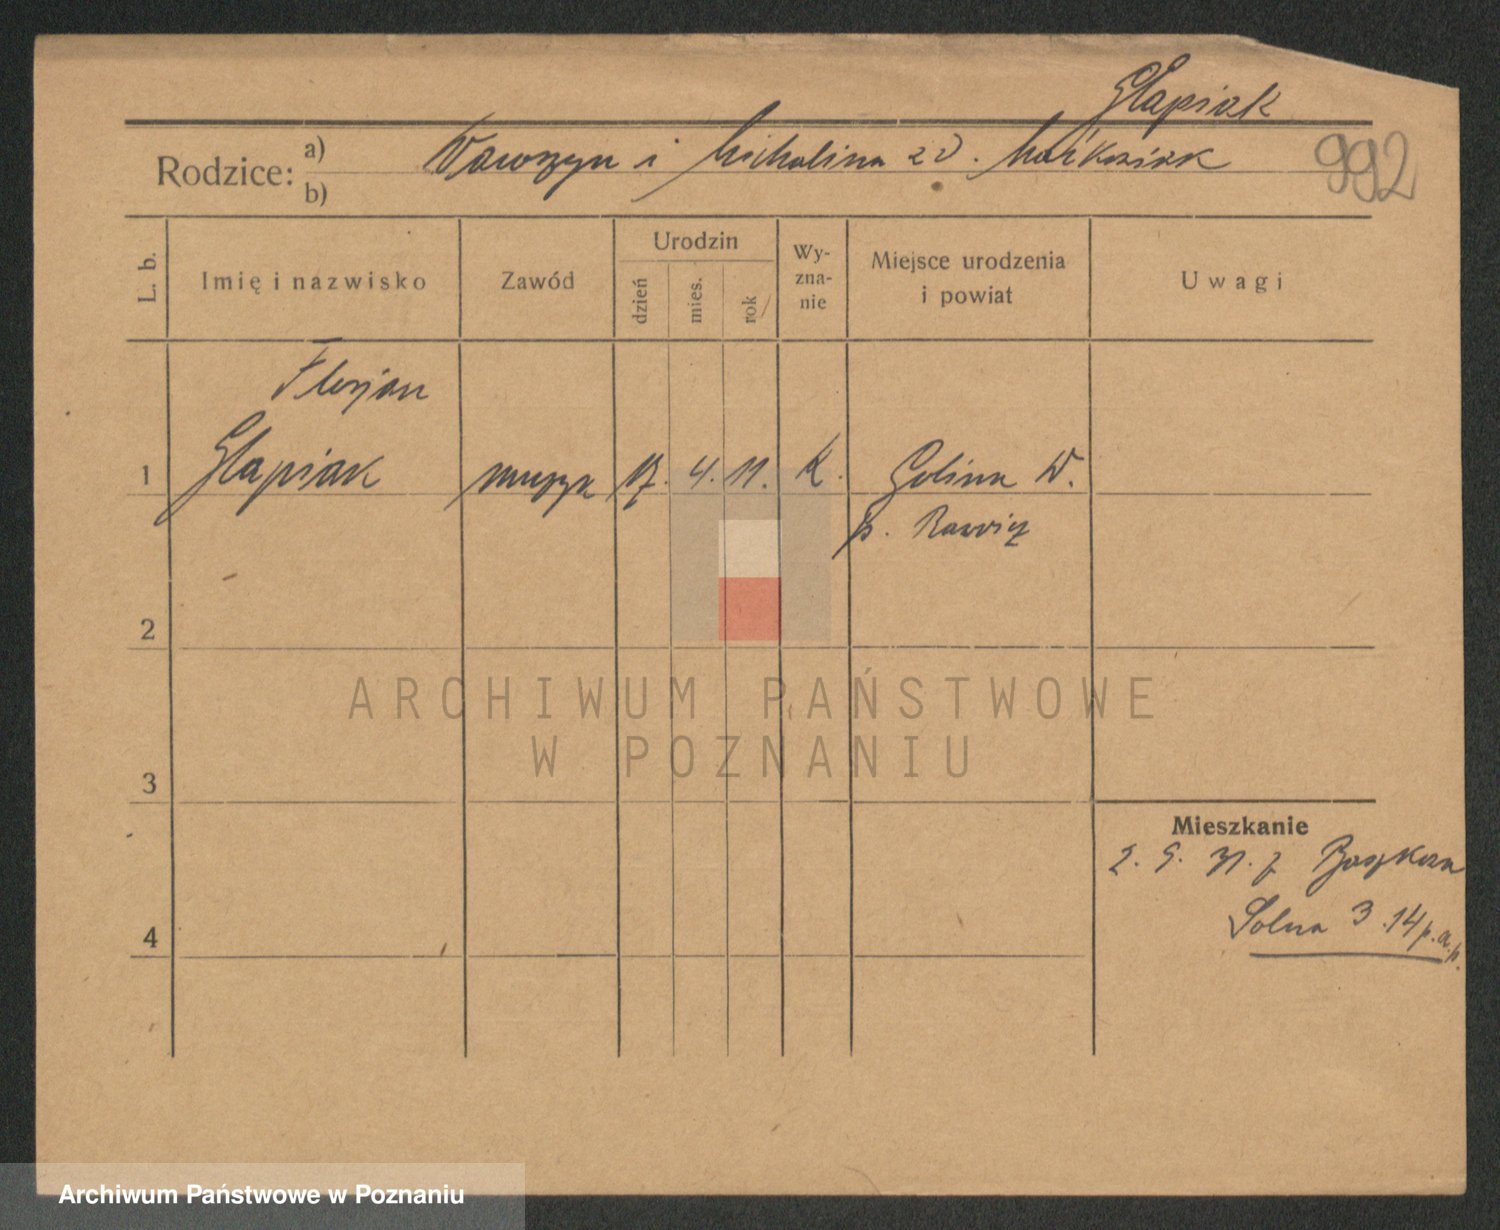 Glapiak
992
Rodzice: a) Wawrzyn i Michalina zd. Maćkowiak
b)
L. b.
Imię i nazwisko
Zawód
Urodzin
dzień
mies.
rok
Wy-
zna-
nie
Miejsce urodzenia
i powiat
Uwagi
Florjan
1 Glapiak muzyk 17. 4. 11. K. Golina W.
p. Rawicz
2
ARCHIWUM PAŃSTWOWE
W POZNANIU
3
Mieszkanie
2. 9. 31. z
4
Solna 3. 14 p.
Archiwum Państwowe w Poznaniu